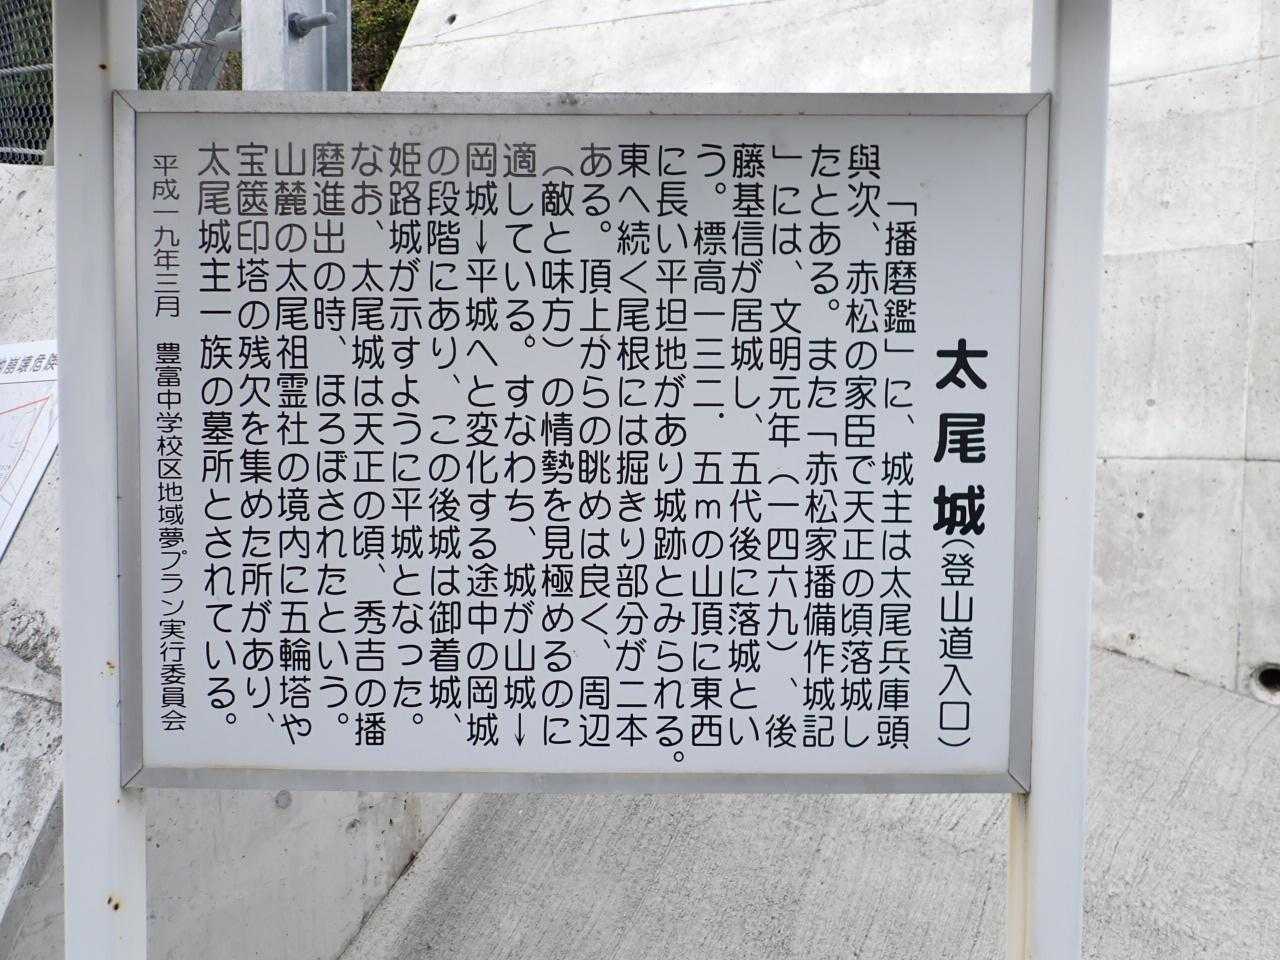 太尾城(登山道入口)
「播磨鑑」に、城主は太尾兵庫頭
與次、赤松の家臣で天正の頃落城し
たとある。また「赤松家播備作城記
」には、文明元年(一四六九)、後
藤基信が居城し、五代後に落城とい
う。標高一三二．五ｍの山頂に東西
に長い平坦地があり城跡とみられる。
東へ続く尾根には掘きり部分が二本
ある。頂上からの眺めは良く、周辺
(敵と味方)の情勢を見極めるのに
適している。すなわち、城が山城→
岡城→平城へと変化する途中の岡城
の段階にあり、この後城は御着城、
姫路城が示すように平城となった。
なお、太尾城は天正の頃、秀吉の播
磨進出の時、ほろぼされたという。
山麓の太尾祖霊社の境内に五輪塔や
宝篋印塔の残欠を集めた所があり、
太尾城主一族の墓所とされている。
平成一九年三月　豊富中学校区地域夢プラン実行委員会
崩壊危険